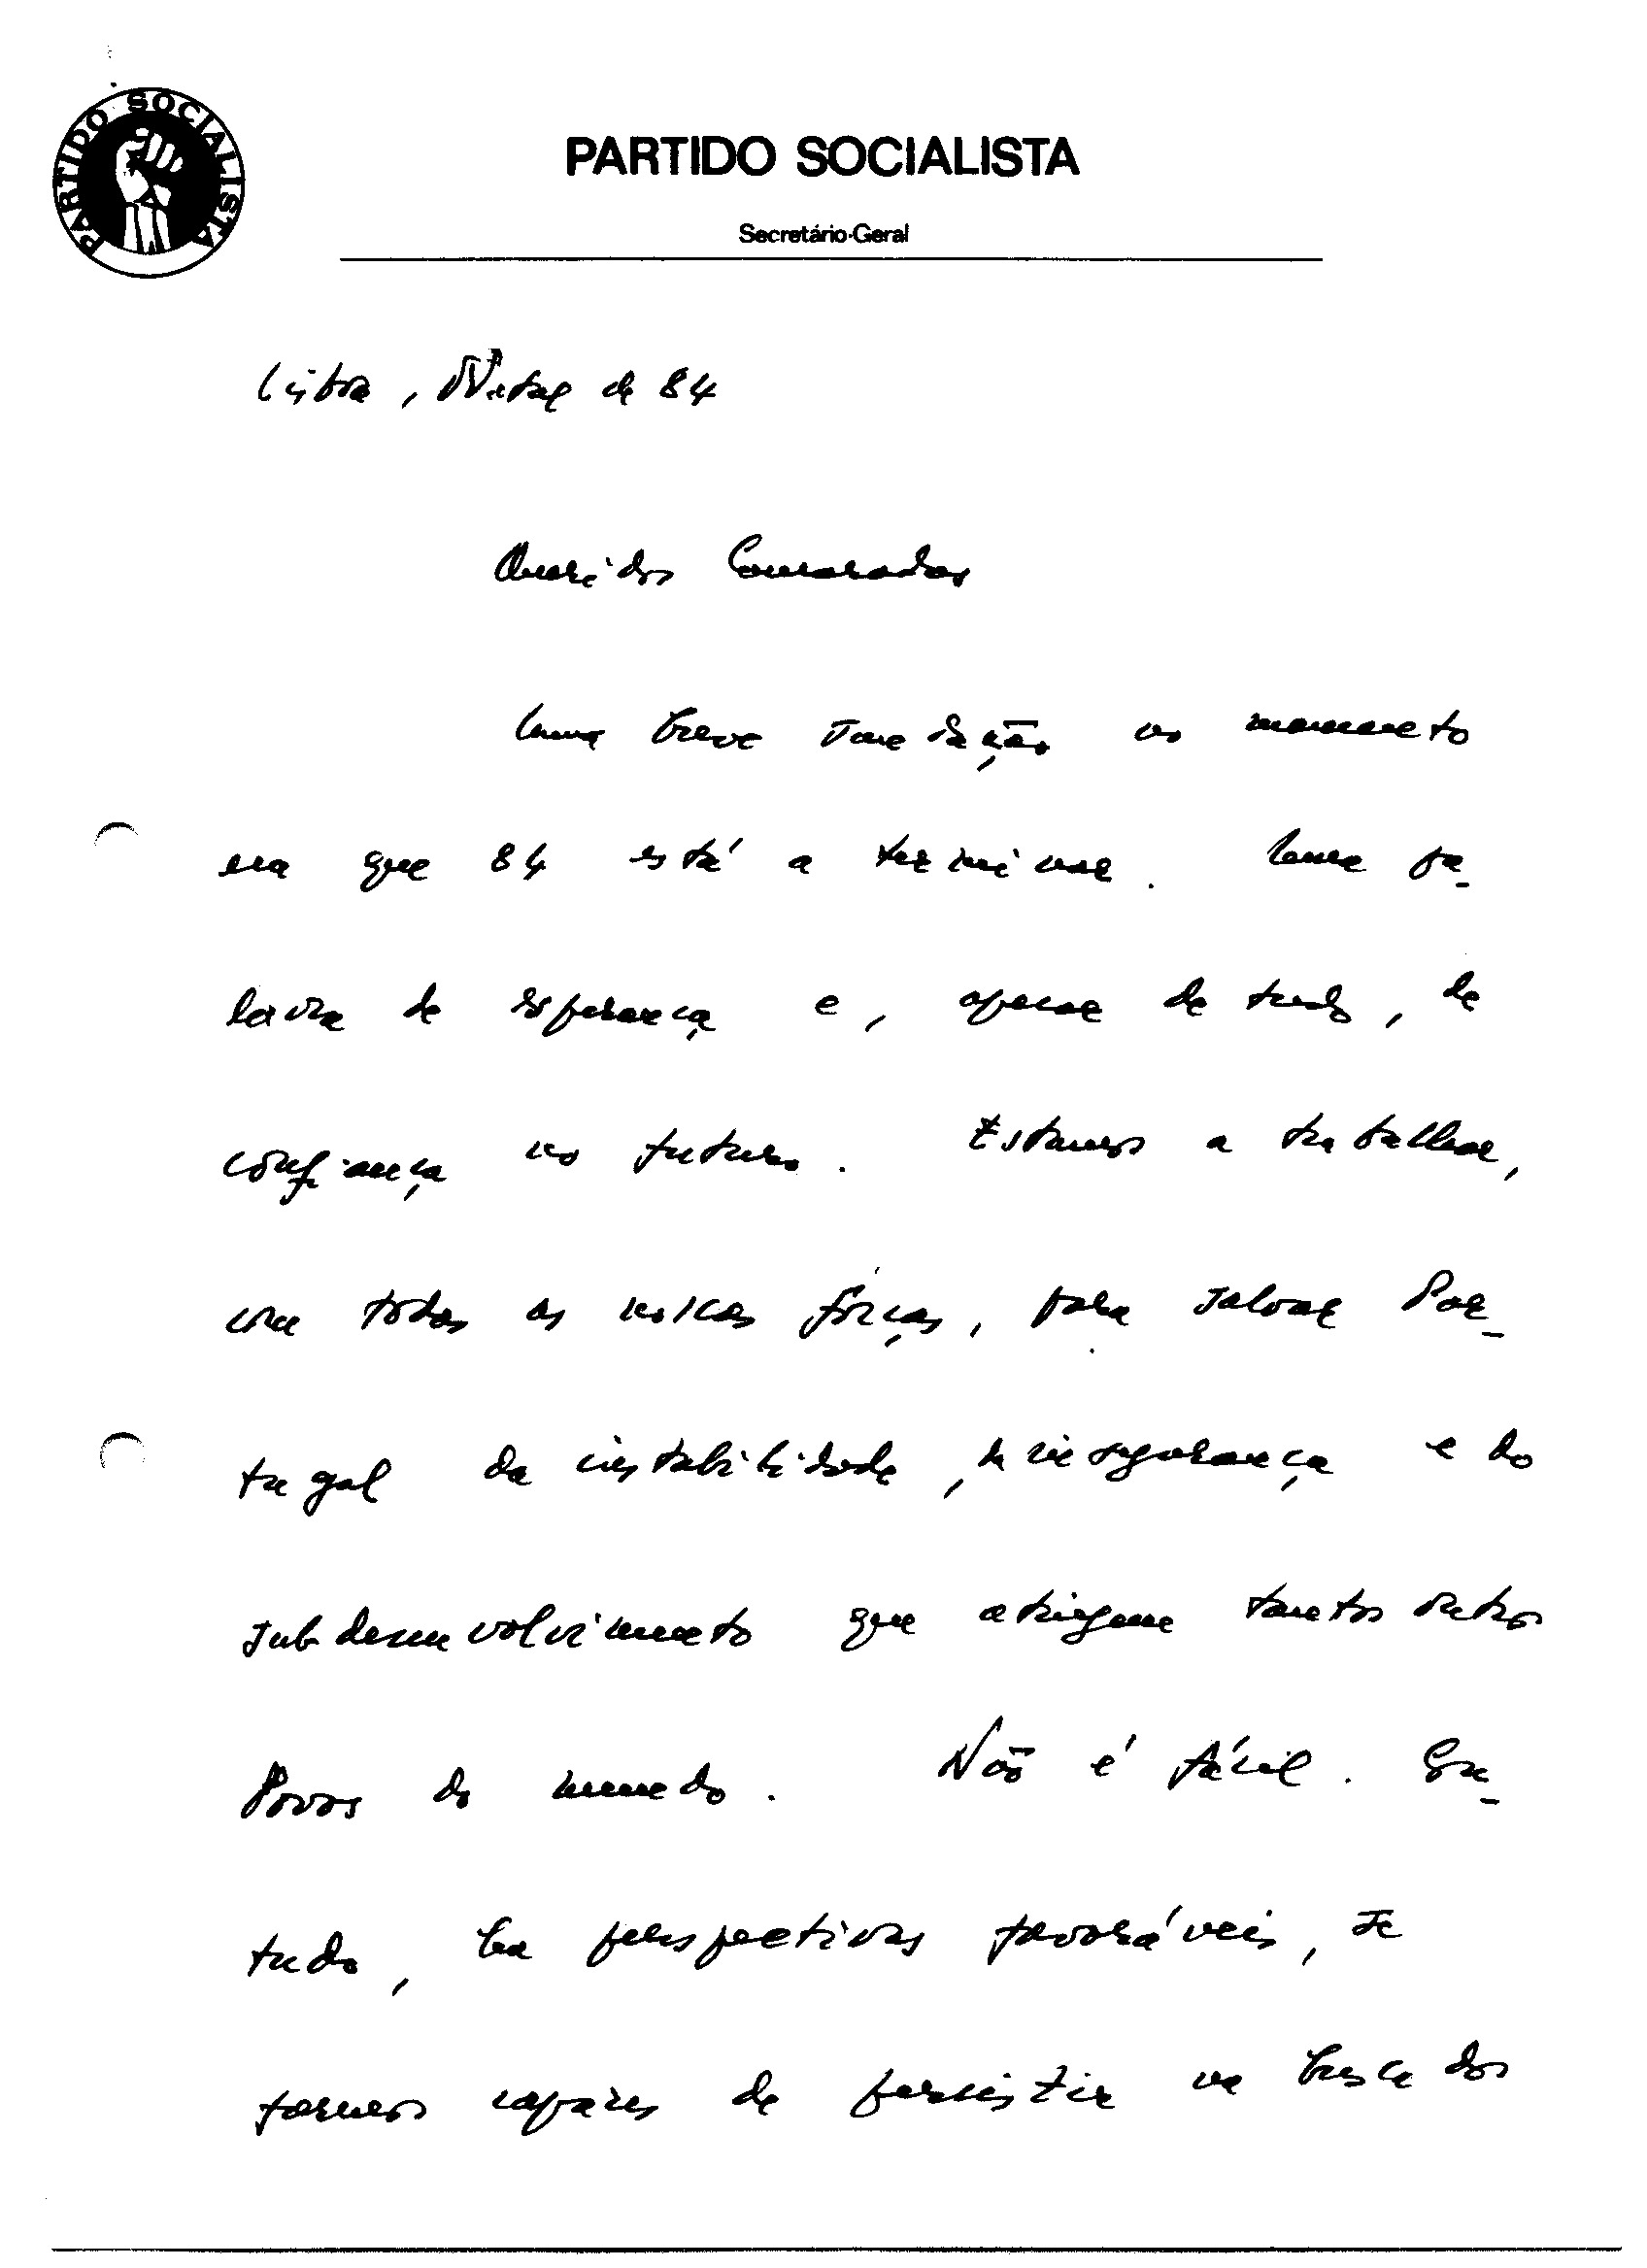 PARTIDO SOCIALISTA
PARTIDO SOCIALISTA
Secretário-Geral
Lisboa, Natal de 84
Queridos Camaradas
Uma breve saudação no momento
em que 84 está a terminar. Uma pa-
lavra de esperança e, apesar de tudo, de
confiança no futuro. Estamos a trabalhar,
com todas as nossas fôrças, para salvar Por-
tugal da instabilidade, da insegurança e do
subdesenvolvimento que atingem tantos outros
Povos do mundo. Não é fácil. Con-
tudo, há perspectivas favoráveis, se
formos capazes de persistir na busca dos